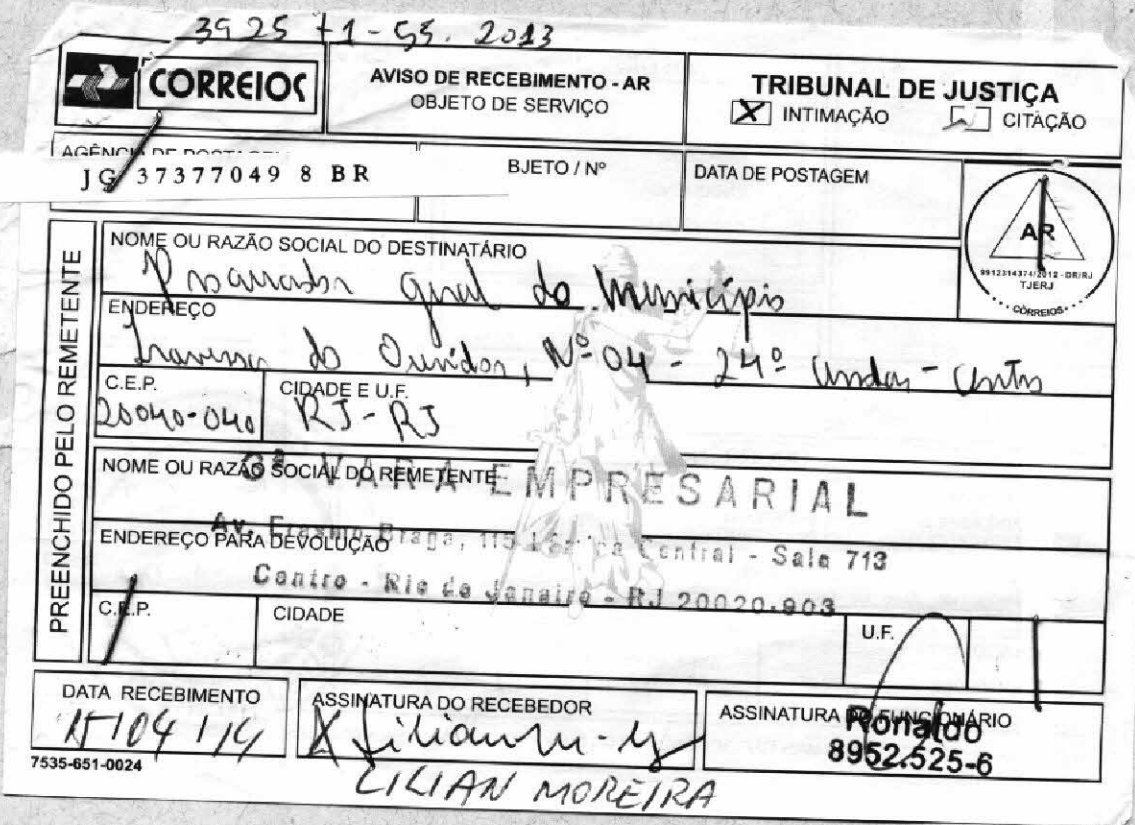 3925 71-55. 2013
CORREIOS
AVISO DE RECEBIMENTO - AR
OBJETO DE SERVIÇO
TRIBUNAL DE JUSTIÇA
X INTIMAÇÃO CITAÇÃO
JG 37377049 8 BR
BJETO / Nº
DATA DE POSTAGEM
AR
9912314374/2012 - DR/RJ
TJERJ
CORREIOS
PREENCHIDO PELO REMETENTE
NOME OU RAZÃO SOCIAL DO DESTINATÁRIO
Procurador Geral do Município
ENDEREÇO
Travessa do Ouvidor, Nº 04 - 24º andar - Centro
C.E.P.
20040-040
CIDADE E U.F.
RJ - RJ
NOME OU RAZÃO SOCIAL DO REMETENTE
VARA EMPRESARIAL
ENDEREÇO PARA DEVOLUÇÃO
Av. Erasmo Braga, 115 Central - Sala 713
Centro - Rio de Janeiro - RJ 20020-903
C.E.P.
CIDADE
U.F.
DATA RECEBIMENTO
15/04/14
ASSINATURA DO RECEBEDOR
X Lilian
LILIAN MOREIRA
ASSINATURA DO FUNCIONÁRIO
Ronaldo
8952.525-6
7535-651-0024